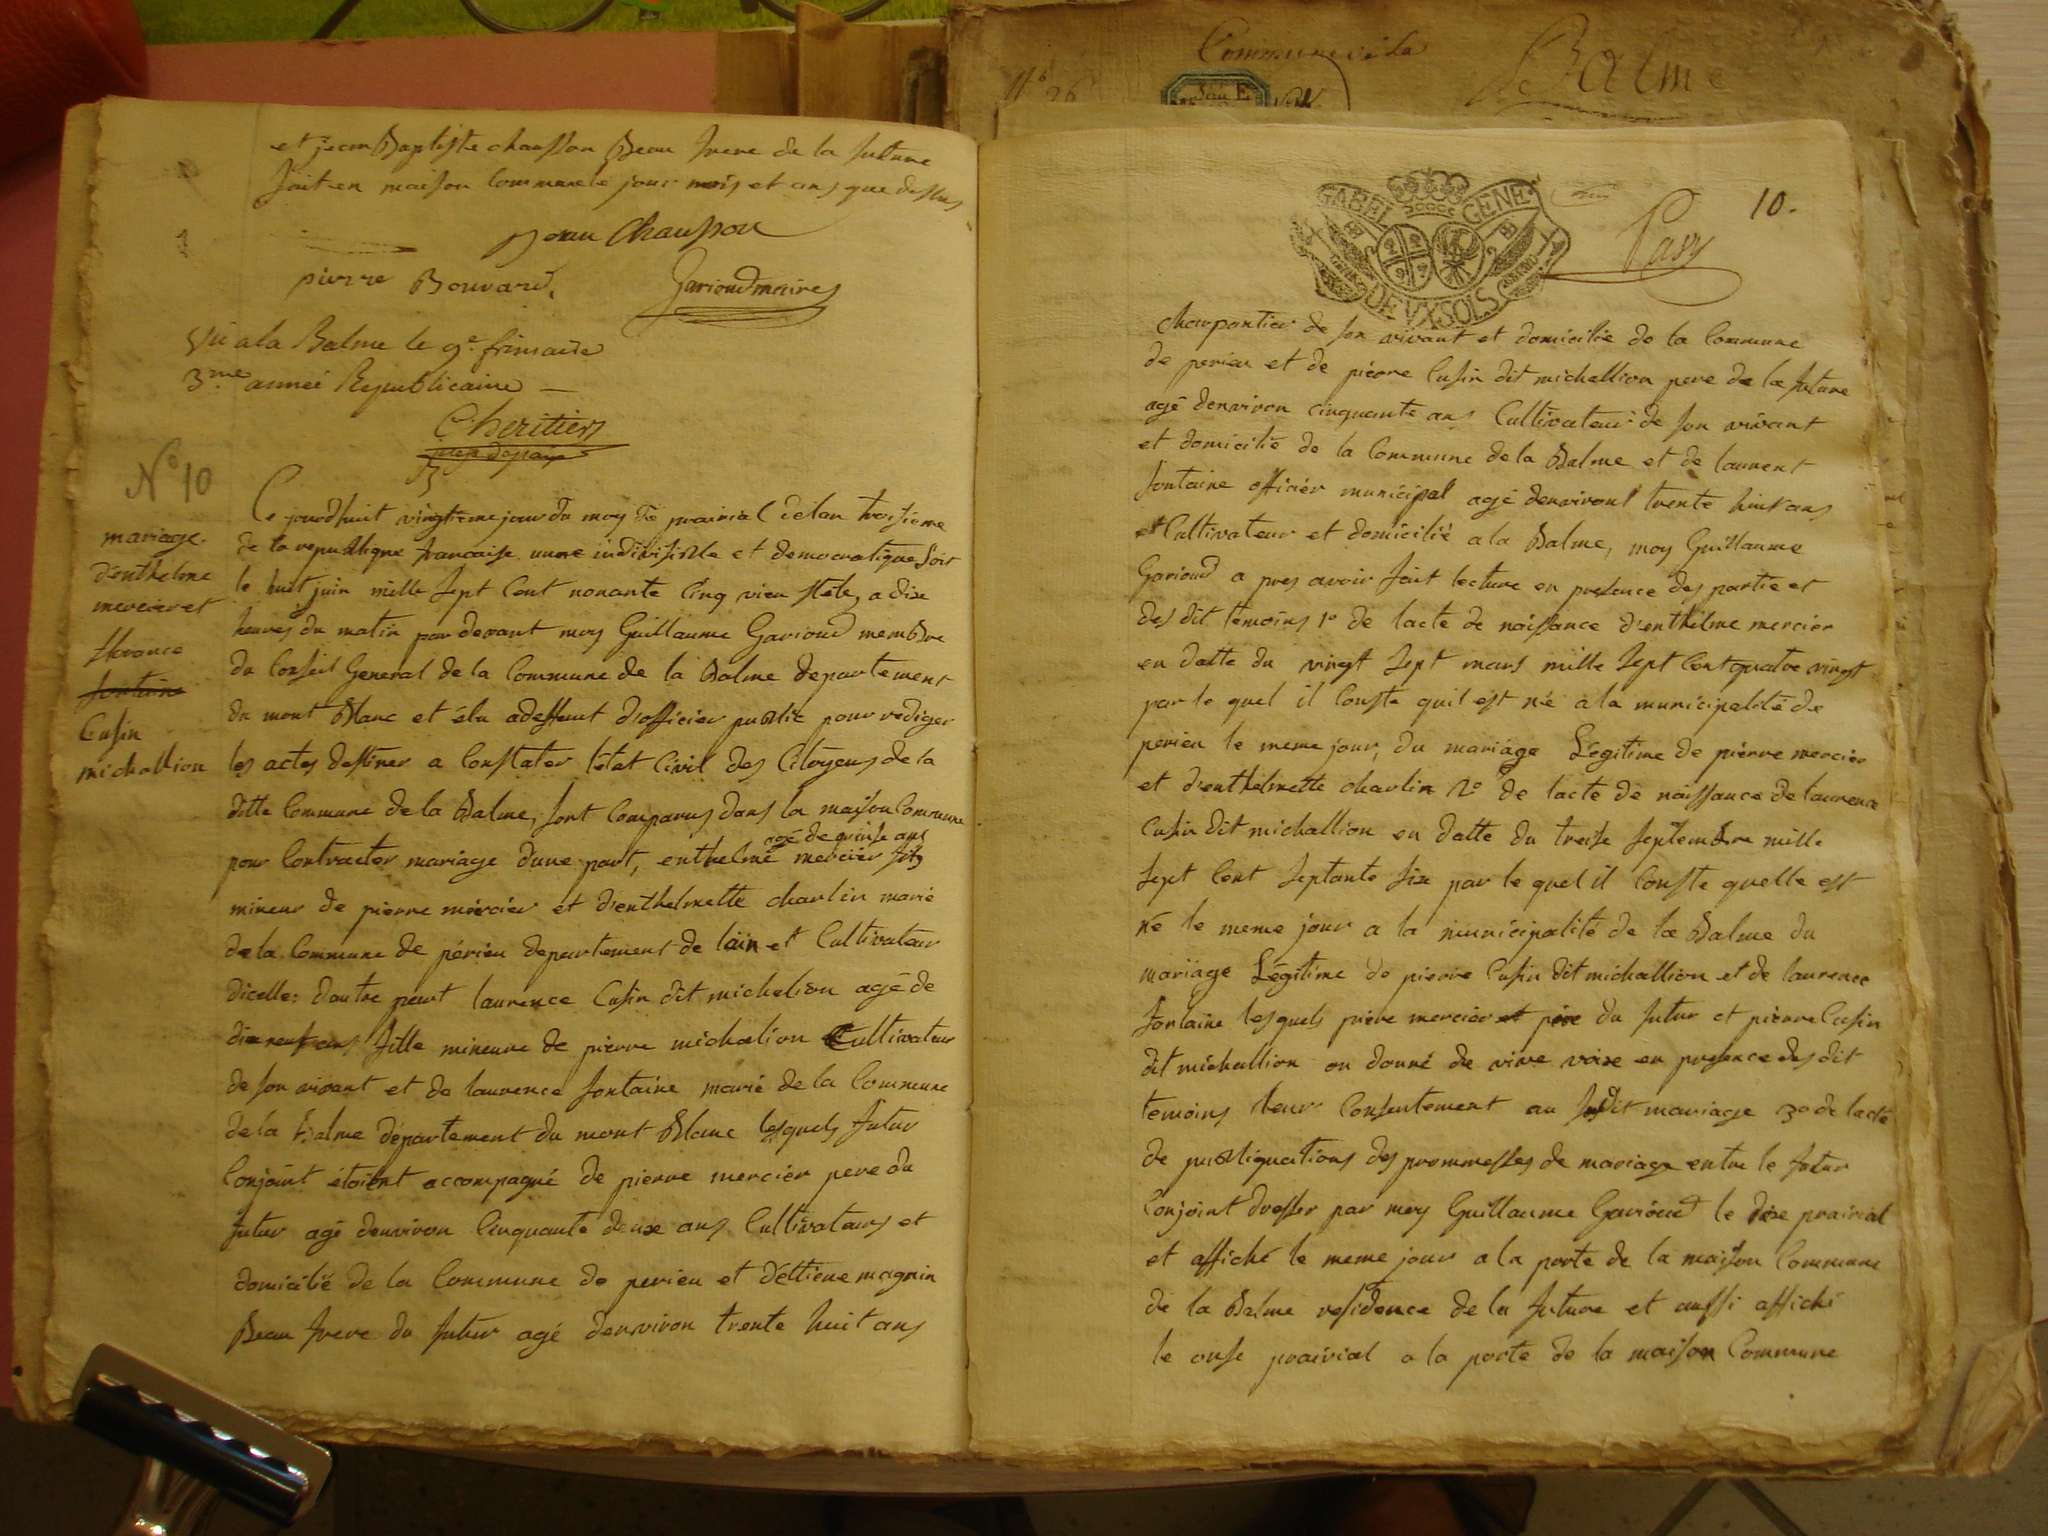 et jean Baptiste chausson Beau frere de la future
fait en maison Commune le jour mois et ans que dessus
Jean Chausson
pierre Bouvard
Garioud maires
Vû a la Balme le 9e. frimaire
3me année Republicaine
Cheritier
N° 10
mariage
d'enthelme
mercier et
france
fontaine
Cusin
michallion
Ce jourdhuit vingtieme jour du moy de prairial de lan troisieme
de la republique francaise une indivisible et democratique soit
le huit juin mille sept Cent nonante Cinq vieu stile, a dixe
heures du matin par devant moy Guillaume Garioud membre
du Conseil General de la Commune de la Balme departement
du mont Blanc et élu adessent d'officier public pour rediger
les actes destiner a Constater létat Civil des Citoyens de la
ditte Commune de la Balme, sont Comparus dans la maison Commune
agé de quinse ans
pour Contracter mariage dune part, enthelme mercier fils
mineur de pierre mércier et d'enthelmette charlin marié
de la Commune de périeu departement de laïn et Cultivateur
dicelle; dautre peart laurence Cusin dit michelion agé de
dix neuf ans fille mineure de pierre michalion Cultivateur
de son vivant et de laurence fontaine marié de la Commune
de la Balme département du mont Blanc lesquels futur
Conjoint étoient accompagné de pierre mercier pere du
futur agé denviron Cinquante deuxe ans Cultivateurs et
domicilié de la Commune de perieu et d'éttiene magnin
Beau frere du futur agé denviron trente huit ans
Commune de la
Balme
N° 26
10.
GABEL GENE.
DEUX SOLS
charpantier de son vivant et domicilié de la Commune
de perieu et de piérre Cusin dit michallion pere de la future
agé denviron cinquante ans Cultivateur de son vivant
et domicilié de la Commune de la Balme et de laurent
fontaine officiér municipal agé denviront trente huit ans
et Cultivateur et domicilié a la Balme, moy Guillaume
Garioud a pres avoir fait lecture en presence des partie et
des dit temoins 1° de lacte de naissance d'enthelme mercier
en datte du vingt sept mars mille sept Cent quatre vingt
par le quel il Conste quil est né a la municipalité de
perieu le meme jour, du mariage Légitime de piérre mercier
et d'enthelmette charlin 2° de lacte de naissance de laurence
Cusin dit michallion en datte du treise septembre mille
sept Cent septante six par le quel il Conste quelle est
né le meme jour a la municipalité de la Balme du
mariage Légitime de pierre Cusin dit michallion et de laurence
fontaine lesquels piere mercier et pére du futur et piérre Cusin
dit michallion on donné de vive voixe en presence des dit
temoins leur Consentement au susdit mariage 3° de lacte
de publiquations des prommesses de mariage entre le futur
Conjoint dresser par moy Guillaume Garioud le dixe prairial
et affiché le meme jour a la porte de la maison Commune
de la Balme residence de la future et aussi affiché
le onse prairial a la porte de la maison Commune